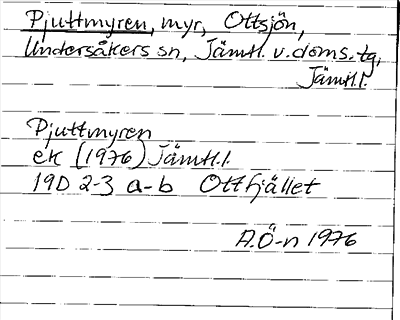 Pjuttmyren, myr, Ottsjön,
Undersåkers sn, Jämtl. v. doms. tg,
Jämtl.l.
Pjuttmyren
ek (1976) Jämtl.l.
19D 2-3 a-b Ottfjället
A.Ö-n 1976